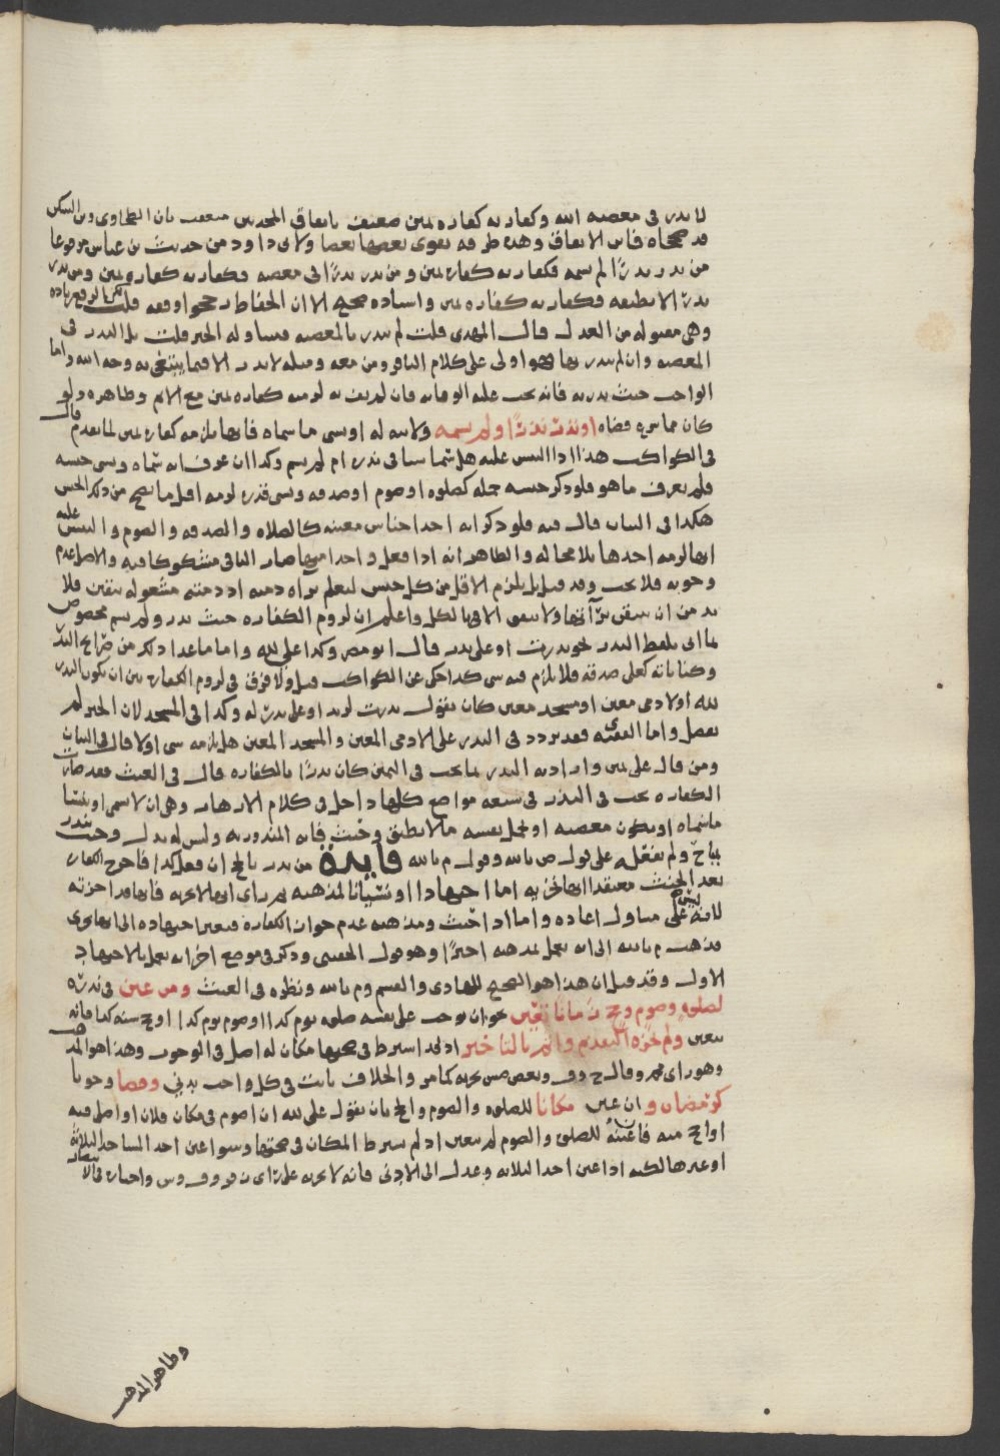 لا نذر في معصية الله وكفارته كفارة يمين ضعيف باتفاق المحدثين متعقب بان الطحاوي وبن السكن
قد صححاه فاين الاتفاق وهذه طرقه يقوي بعضها بعضا ولابي داود من حديث بن عباس مرفوعا
من نذر نذرًا لم يسمه فكفارته كفارة يمين ومن نذر نذرًا في معصية فكفارته كفارة يمين ومن نذر
نذرًا لا يطيقه فكفارته كفارة يمين واسناده صحيح الا ان الحفاظ رجحوا وقفه قلت الرفع زيادة
وهي مقبولة من العدل قال المهدي قلت لم ينذر بالمعصية فيتناوله الخبر قلت بل النذر في
المعصية وان لم ينذر بها فهو اولى على كلام الباقر ومن معه ومثله لا نذر الا فيما يبتغى به وجه الله واما
الواجب حيث نذر به فانه يجب عليه الوفا به فان لم يف به لزمته كفارة يمين مع الاثم وظاهره ولو
كان مما قضاه او نذر نذرًا ولم يسمه ولا نية له او نسي ما سماه فانها تلزمه كفارة يمين لما تقدم قال
في الكواكب هذا اذا التبس عليه هل سما شيا في نذره ام لم يسم وكذا ان عرف انه سماه ونسي جنسه
فلم يعرف ما هو فلو ذكر جنسه جملة كصلوة او صوم او صدقة ونسي قدره لزمه اقل ما يصح من ذلك الجنس
هكذا في البيان قال فيه فلو ذكر انه احد اجناس معينة كالصلاة والصدقة والصوم والتبس عليه
ايها لزمه احدها بلا محالة والظاهر انه اذا فعل واحدا منها صار الباقي مشكوكا فيه والاصل عدم
وجوبه فلا يجب وقد قيل بل يلزم الاقل من كل جنس ليعلم براه ذمته اذ ذمته مشغولة بيقين فلا
بد من ان يتيقن برآتها ولا يتيقن الا في الكل واعلم ان لزوم الكفارة حيث نذر ولم يسم مخصوص
بما اتى بلفظ النذر نحو نذرت او علي نذر قال ابو مضر وكذا علي لله واما ما عدا ذلك من صرايح النذر
وكناياته كعلي صدقة فلا يلزم فيه شي كذا حكى عن الكواكب قيل ولا فرق في لزوم الكفارة بين ان يكون النذر
لله او لادمي معين او مسجد معين كان يقول نذرت لزيد او علي نذر له وكذا في المسجد لان الخبر لم
يفصل واما الفقيه فقد تردد في النذر على الادمي المعين والمسجد المعين هل يلزمه شي او لا قال في البيان
ومن قال علي يمين واراد به النذر بما يجب في اليمين كان نذرًا بالكفارة قال في الغيث فقد صارت
الكفارة تجب في النذر في سبعة مواضع كلها داخل في كلام الازهار وهي ان لا يسمي او ينسا
ما سماه او يكون معصية او لجل نفسه ما لا يطيق وحنث فاته المنذور به وليس له بدل وحيث نذر
بباح ولم يفعله على قول ص بالله وقول م بالله فايدة من نذر بالحج ان فعل كذا فاخرج الكفارة
بعد الحنث معتقدا انها تجزيه اما اجتهادا او نسيانا لمذهبه ثم راى انها لا تجزيه فانها قد اجزته
لانه مساول اعاده واما اذا حنث ومذهبه عدم جواز الكفارة فتغير اجتهاده الى انها تجزي
فذهب م بالله الى انه يعمل بمذهبه اخيرًا وهو قول الحقيني وذكر في موضع اخر انه يعمل بالاجتهاد
الاول وقد قيل ان هذا هو الصحيح للهادي والقسم وم بالله ونظره في الغيث ومن عين في نذره
لصلوة وصوم وحج زمانا تعين نحو ان يوجب على نفسه صلوة يوم كذا او صوم يوم كذا او حج سنة كذا فانه
يتعين ولم يجزه التقديم واثم بالتاخير اذ لم يشترط في صحتها مكان له اصل في الوجوب وهذا هو المذهب
وهو راي محمد وقال ح وف وبعض ص يجزيه كما مر والخلاف ثابت في كل واجب بدني وقضا وجوبا
كرمضان و ان عين مكانا للصلوة والصوم والحج بان يقول علي لله ان اصوم في مكان فلان او اصلي فيه
او احج منه فاعينه للصلوة والصوم لم يتعين اذ لم يشترط المكان في صحتها وسوا عين احد المساجد الثلاثة
او غيرها لكنه اذا عين احد الثلاثة وعدل الى الادنى فانه لا يجزيه على راي ن وف وش واختاره في الانتصار
وظاهر المذهب